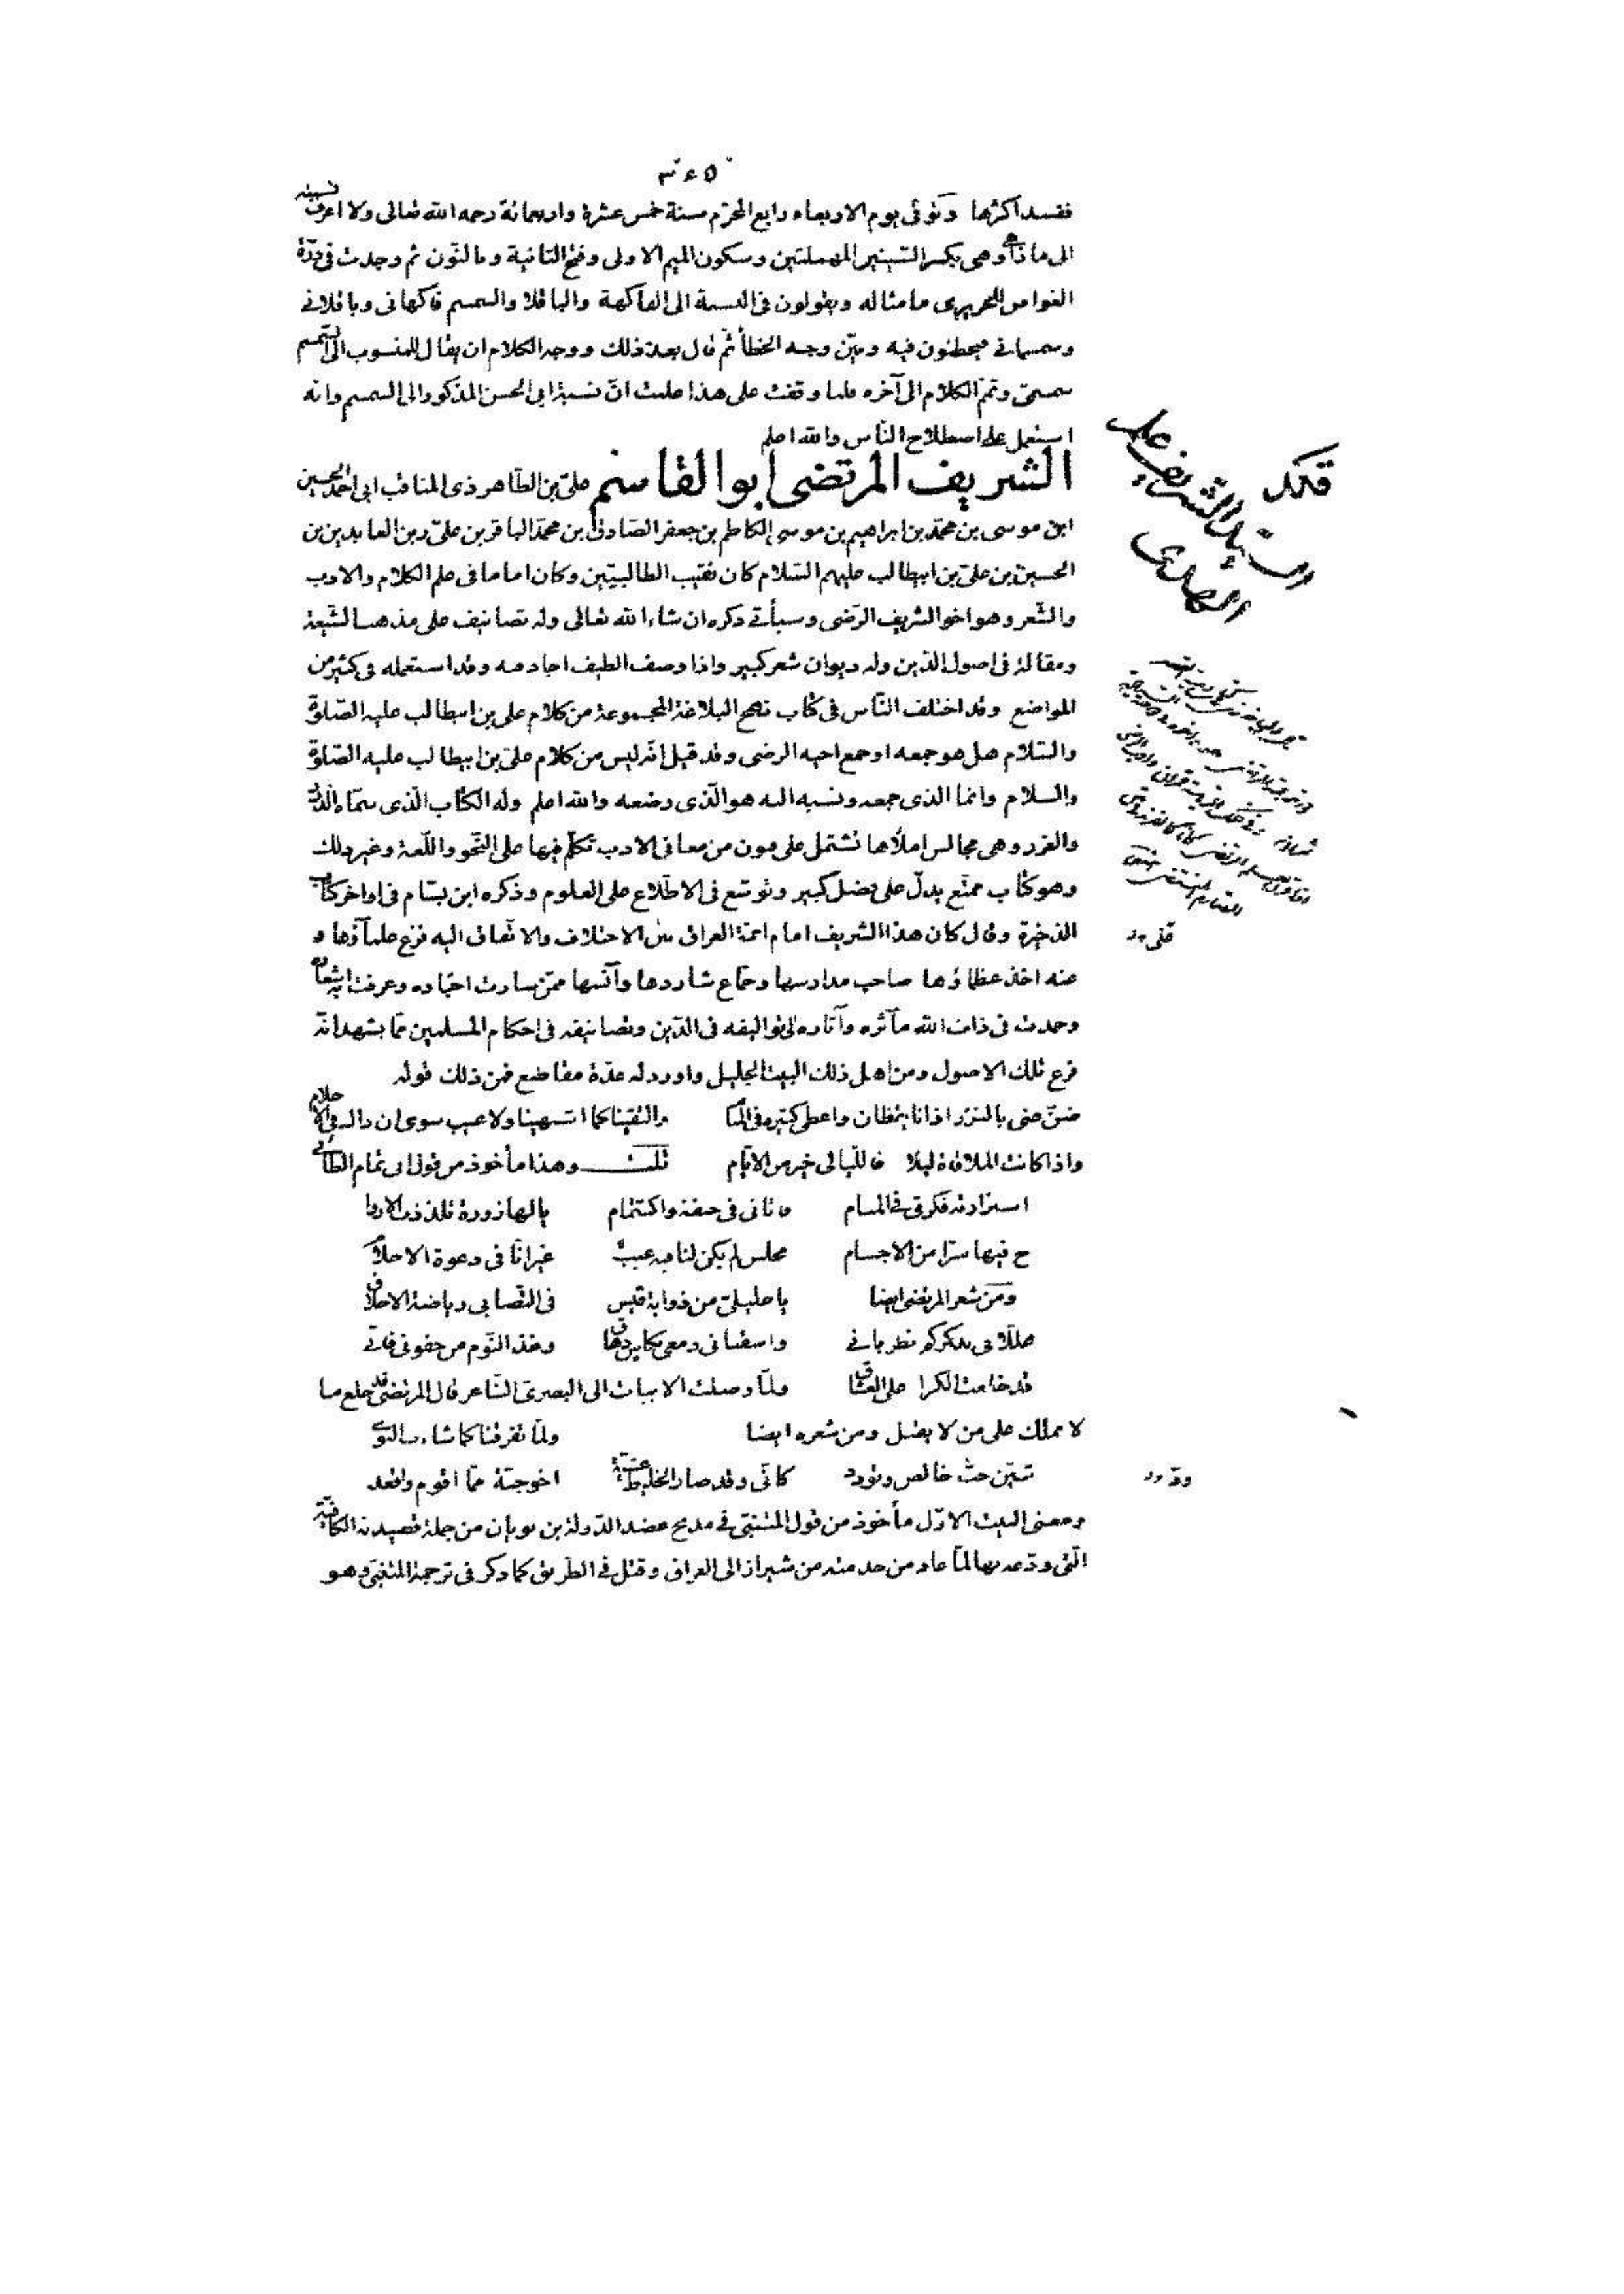 ٣٤٥
ففسد اكثرها وتوفى يوم الاربعاء رابع المحرم سنة خمس عشرة واربعمائة رحمه الله تعالى ولا اعرف نسبته
الى ماذا وهى بكسر السينين المهملتين وسكون الميم الاولى وفتح الثانية وبالنون ثم وجدت فى درّة
الغواص للحريرى ما مثاله ويقولون فى النسبة الى الفاكهة والباقلا والسمسم فاكهانى وباقلانى
وسمسمانى فيخطئون فيه وبيّن وجه الخطأ ثم قال بعد ذلك ووجه الكلام ان يقال للمنسوب الى السمسم
سمسمىّ وتمّم الكلام الى آخره فلما وقفت على هذا علمت انّ نسبة ابى الحسن المذكور الى السمسم وانه
استعمل على اصطلاح الناس والله اعلم
الشريف المرتضى ابو القاسم علىّ بن الطاهر ذى المناقب ابى احمد الحسين
ابن موسى بن محمّد بن ابراهيم بن موسى الكاظم بن جعفر الصّادق بن محمّد الباقر بن علىّ زين العابدين بن
الحسين بن علىّ بن ابيطالب عليهم السّلام كان نقيب الطالبيّين وكان اماما فى علم الكلام والادب
والشّعر وهو اخو الشريف الرضى وسيأتى ذكره ان شاء الله تعالى وله تصانيف على مذهب الشّيعة
ومقالة فى اصول الدّين وله ديوان شعر كبير واذا وصف الطيف اجاد فيه وقد استعمله فى كثير من
المواضع وقد اختلف النّاس فى كتاب نهج البلاغة المجموعة من كلام على بن ابيطالب عليه الصّلوة
والسّلام هل هو جمعه او جمع اخيه الرضى وقد قيل انّه ليس من كلام علىّ بن ابيطالب عليه الصّلوة
والسلام وانما الذى جمعه ونسبه اليه هو الّذى وضعه والله اعلم وله الكتاب الّذى سمّاه الدّرر
والغرر وهى مجالس املاها تشتمل على فنون من معانى الادب تكلّم فيها على النّحو واللّغة وغير ذلك
وهو كتاب ممتّع يدلّ على فضل كبير وتوسّع فى الاطّلاع على العلوم وذكره ابن بسّام فى اواخر كتاب
الذخيرة وقال كان هذا الشريف امام ائمة العراق بين الاختلاف والاتفاق اليه فزع علمآؤها و
عنه اخذ عظماؤها صاحب مدارسها وجمّاع شاردها وآنسها ممّن سارت اخباره وعرفت به اشعاره
وحمدت فى ذات الله مآثره وآثاره الى تواليفه فى الدّين وتصانيفه فى احكام المسلمين ممّا يشهد انّه
فرع تلك الاصول ومن اهل ذلك البيت الجليل واورد له عدّة مقاطيع فمن ذلك قوله
ضنّ عنى بالنزر اذ انا يقظان واعطى كثيره فى المنام والتقينا كما اشتهينا ولا عيب سوى ان ذاك فى الاحلام
واذا كانت الملاقاة ليلا فالليالى خير من الايّام قلت وهذا مأخوذ من قول ابى تمام الطائى
استزارته فكرتى فى المنام فاتانى فى خفية واكتتام يا لها زورة تلذذت الاروا
ح فيها سرّا من الاجسام مجلس لم يكن لنا فيه عيب غير انّا فى دعوة الاحلام
ومن شعر المرتضى ايضا يا خليلىّ من ذوابة قيس فى التّصابى رياضة الاخلاق
علّلانى بذكركم تطربانى واسقيانى دمعى بكاس دهاق وخذا النّوم من جفونى فانّى
قد خلعت الكرا على العشاق ولمّا وصلت الابيات الى البصرىّ الشّاعر قال المرتضى قد خلع ما
لا يملك على من لا يقبل ومن شعره ايضا ولمّا تفرقنا كما شاءت النوى
تبيّن حبّ خالص وتودد كانّى وقد صار الخليط عشيّة اخو جنّة ممّا اقوم واقعد
ومعنى البيت الاوّل مأخوذ من قول المتنبّى فى مديح عضد الدّولة بن بويه من جملة قصيدته الكافية
الّتى ودّعه بها لمّا عاد من خدمته من شيراز الى العراق وقتل فى الطّريق كما ذكر فى ترجمة المتنبّى وهو
السيّد الشريف علم الهدى